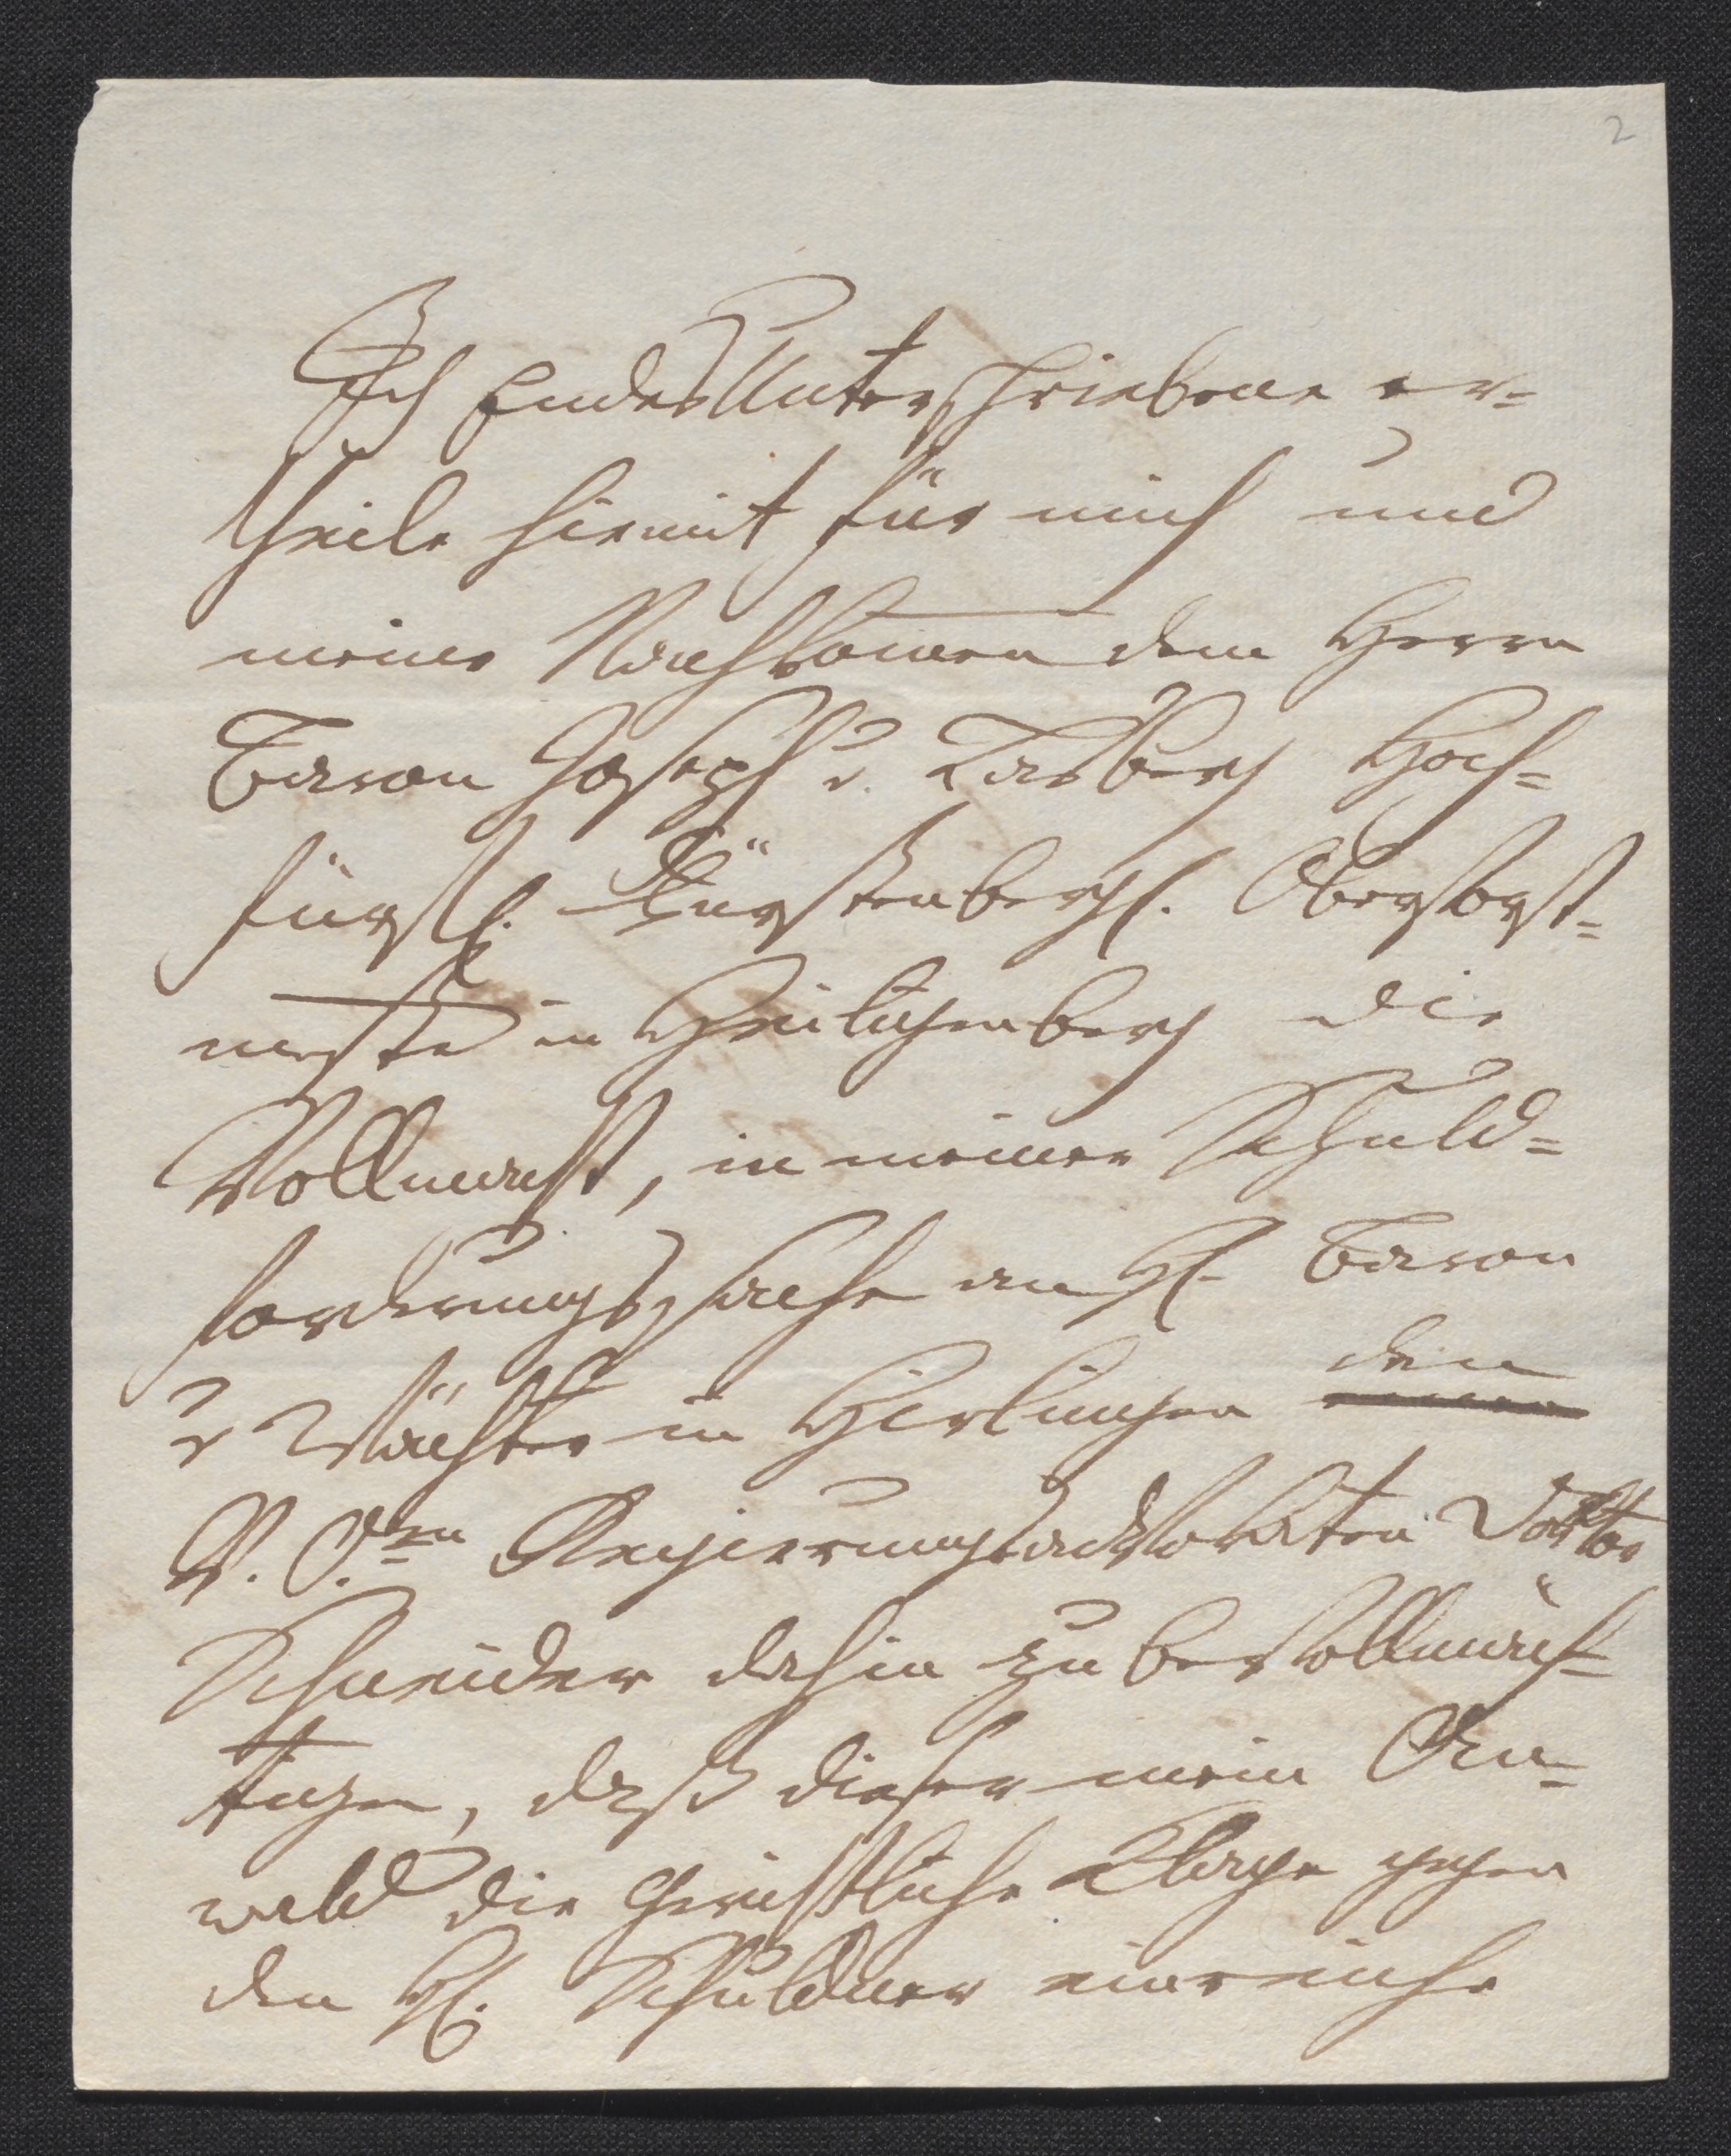 2
Ich Endes Unterschriebene er=
theile hiemit für mich und
meine Nachkomen dem Herrn
Baron Joseph v. Lasberg Hoch=
fürstl. Fürstenbergl. Oberforst=
meister in Heiligenberg die
Vollmacht, in meiner Schuld=
forderungs sache an H. Baron
v Wächter in Hirlingen den
V. Ö.en Regierungsadvokaten Doktor
Schneider dahin zu bevollmäch=
tigen, daß dieser mein An=
wald die gerichtliche Klage gegen
den H. Schuldner einreiche